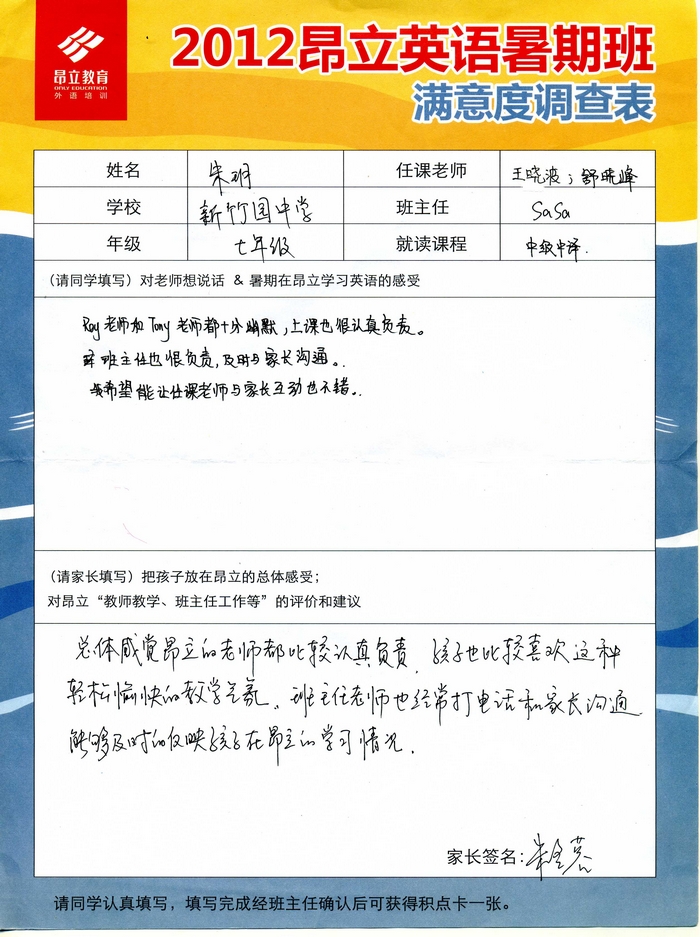 昂立教育
ONLY EDUCATION
外语培训
2012昂立英语暑期班
满意度调查表
姓名 朱玥 任课老师 王晓波；舒晓峰
学校 新竹园中学 班主任 SaSa
年级 七年级 就读课程 中级中译.
（请同学填写）对老师想说话 & 暑期在昂立学习英语的感受
Roy老师和Tony老师都十分幽默，上课也很认真负责。
班主任也很负责，及时与家长沟通。
希望能让任课老师与家长互动也不错。
（请家长填写）把孩子放在昂立的总体感受；
对昂立“教师教学、班主任工作等”的评价和建议
总体感觉昂立的老师都比较认真负责，孩子也比较喜欢这种
轻松愉快的教学气氛。班主任老师也经常打电话和家长沟通
能够及时的反映孩子在昂立的学习情况.
家长签名:
请同学认真填写，填写完成经班主任确认后可获得积点卡一张。